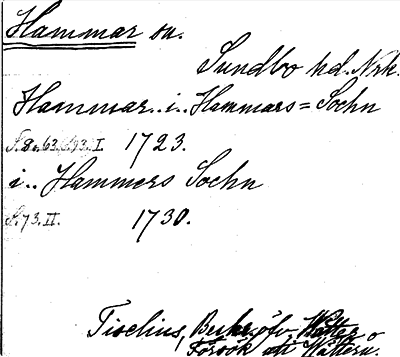 Hammar sn.
Sundbo hd. Nrk.
Hammar.. i.. Hammars= Sochn
S. 8 o. 63, S. 93. I. 1723.
i.. Hammers Sochn
S. 73. II. 1730.
Tiselius, Beskrifv. Wätter
Försök att Wättern.